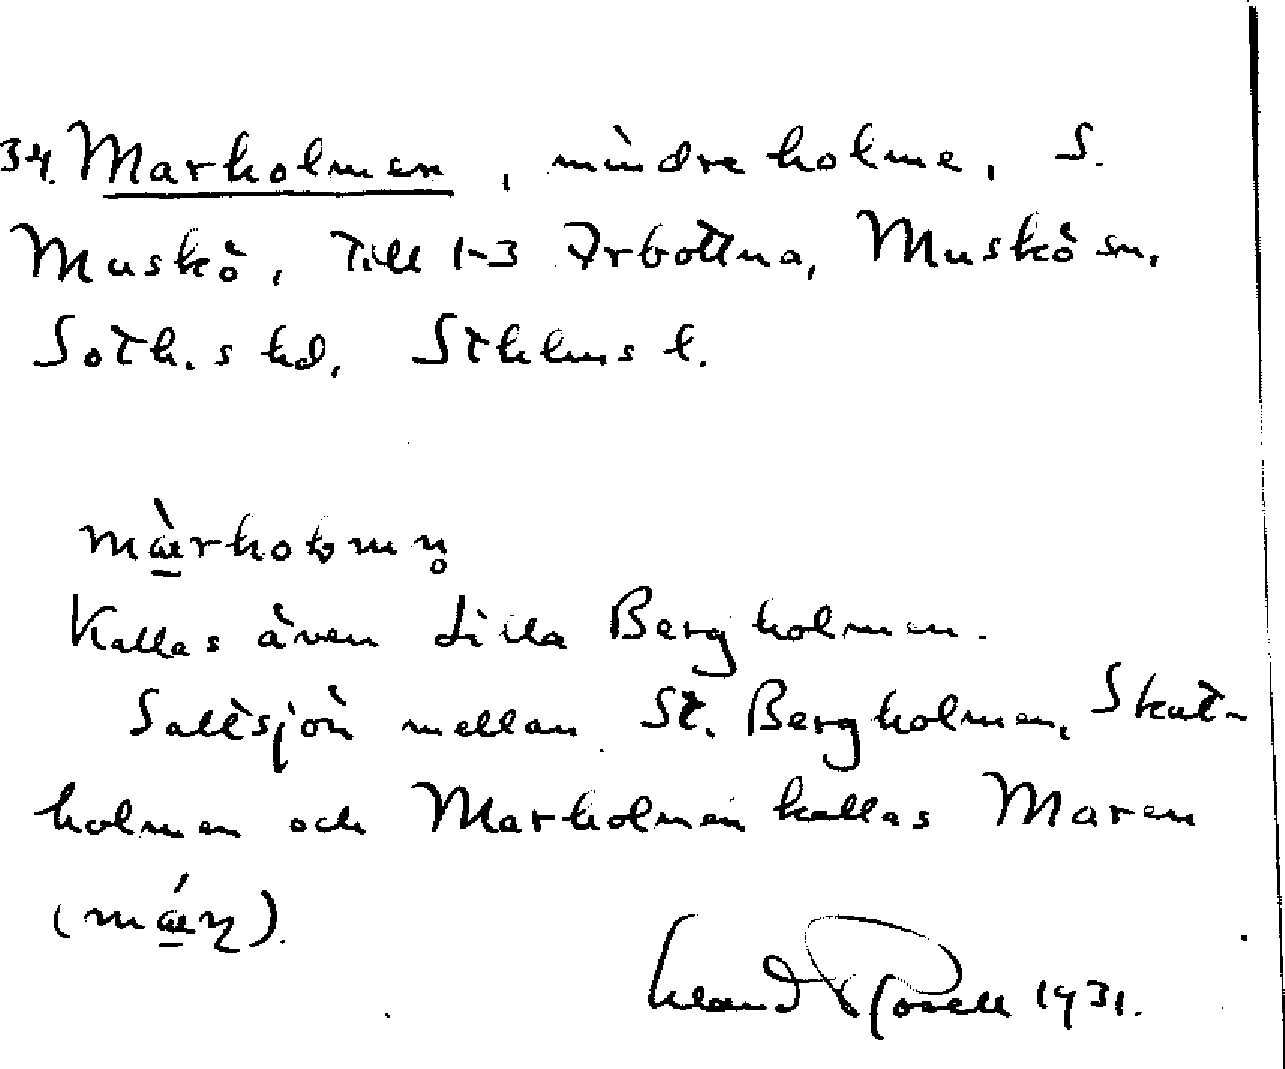 34. Marholmen, mindre holme, S.
Muskö, till 1-3 Arbottna, Muskö sn,
Soth.s hd, Sthlms l.
mὰrholmn̥
Kallas även Lilla Bergholmen.
Saltsjön mellan St. Bergholmen, Skat-
holmen och Marholmen kallas Maren
Rosell 1931.